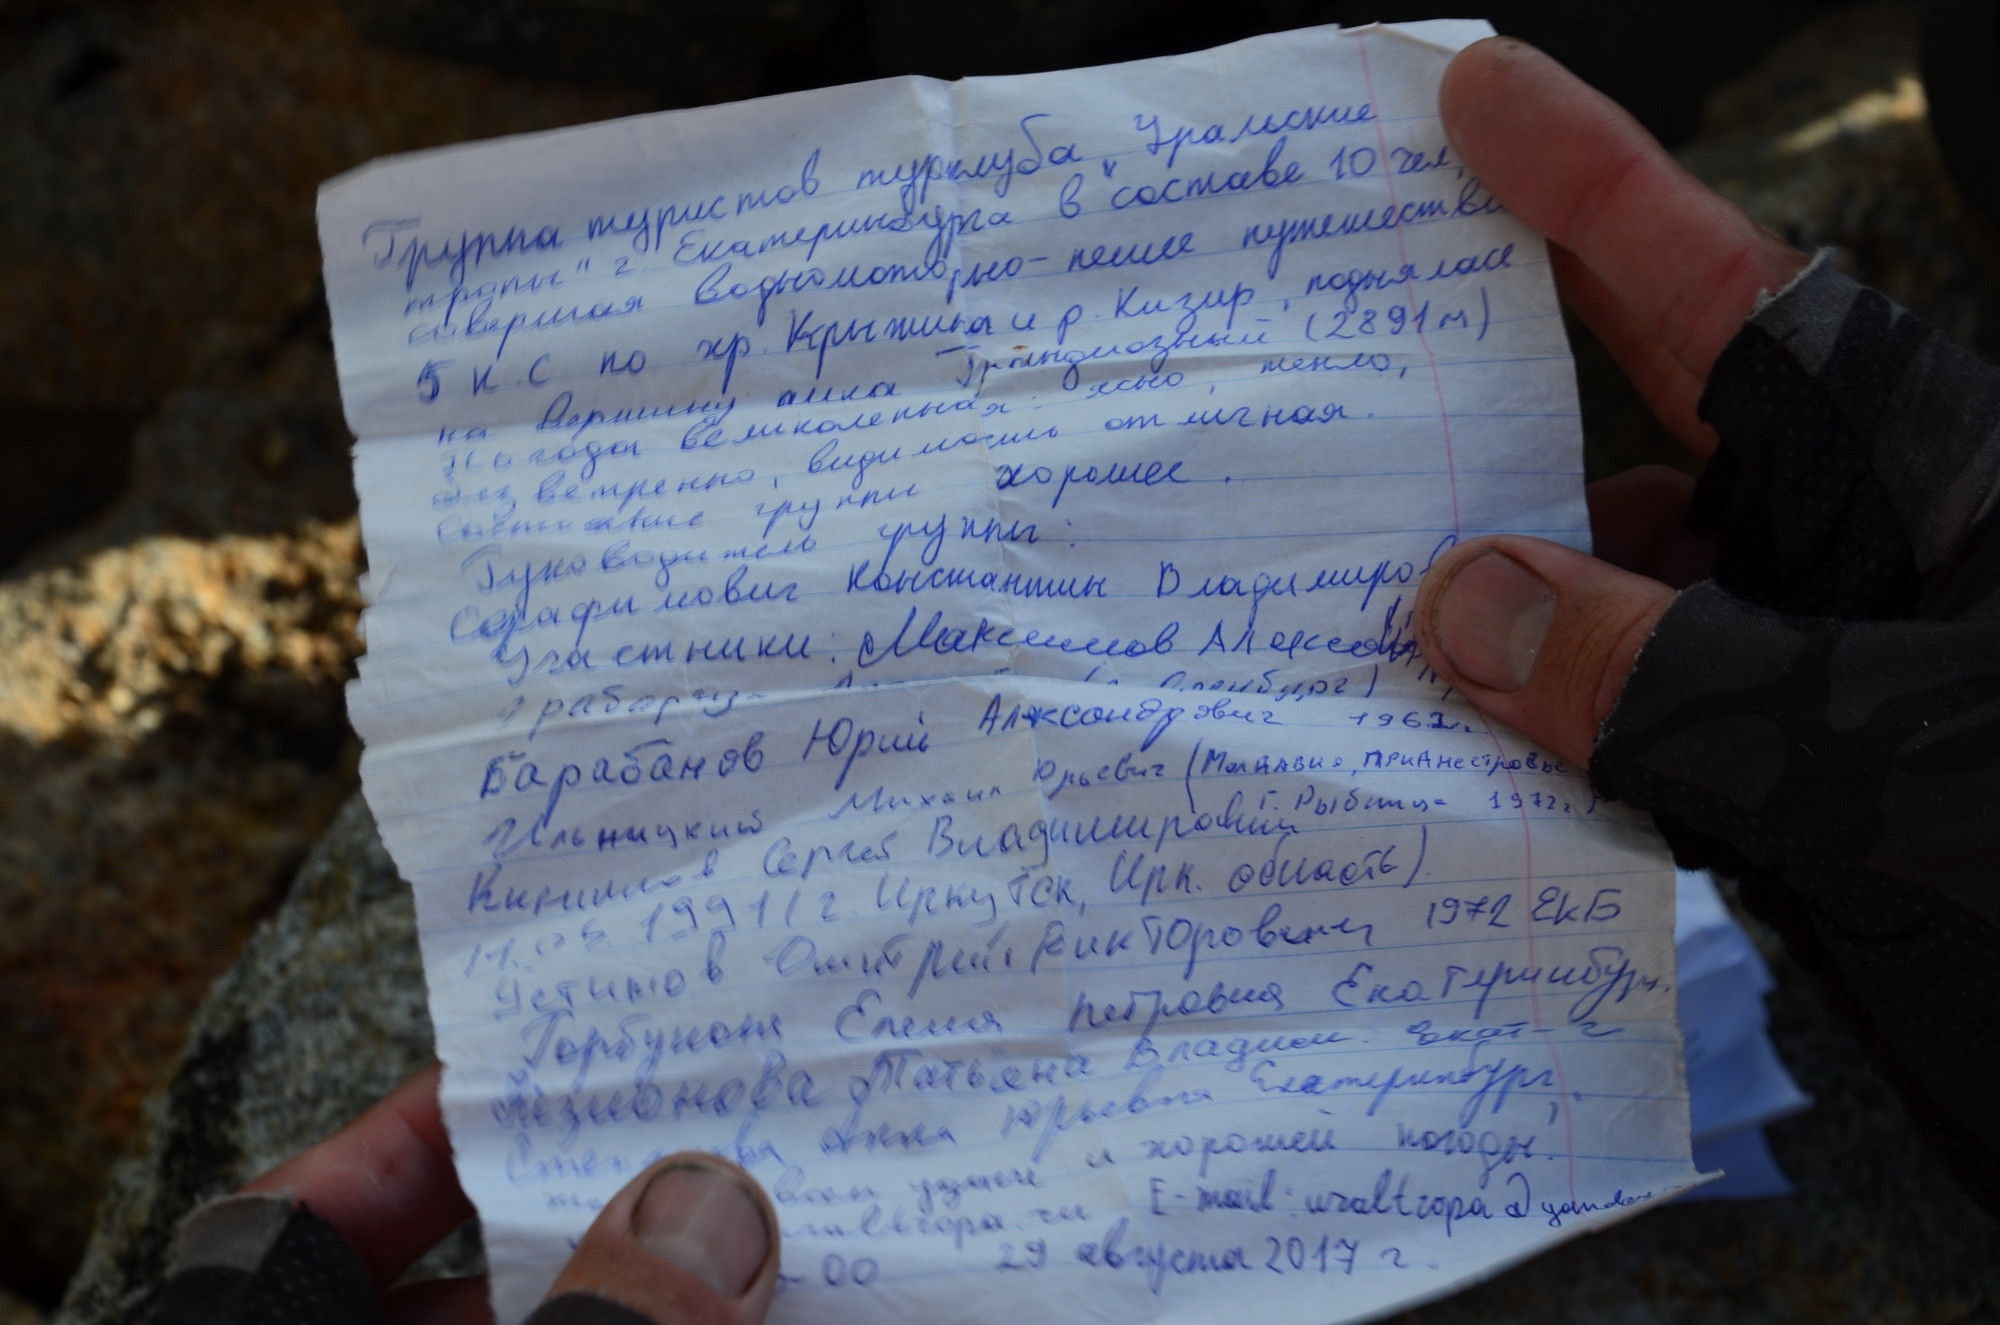 Группа туристов турклуба „Уральские
тропы" г. Екатеринбурга в составе 10 чел,
совершая водномоторно-пешее путешествие
5 к.с по хр. Крыжина и р. Кизир, поднялась
на вершину пика Грандиозный (2891 м)
Погода великолепная: ясно, тепло,
безветренно, видимость отличная.
Состояние группы хорошее.
Руководитель группы:
Серафимович Константин Владимиров
Участники: Максимов
(г. Оренбург)
Барабанов Юрий Александрович 1961г.
Ильницкий Михаил Юрьевич (Молдавия, Приднестровье
г. Рыбница 1972г.)
Кириллов Сергей Владимирович
1991 (г. Иркутск, Ирк. область).
Устинов Дмитрий Викторович 1972 ЕКБ
Горбунова Елена Петровна Екатеринбург.
Татьяна Владим. Екат-г
Анна Юрьевна Екатеринбург.
удачи и хорошей погоды!
E-mail: uraltropa@yandex
00 29 августа 2017 г.